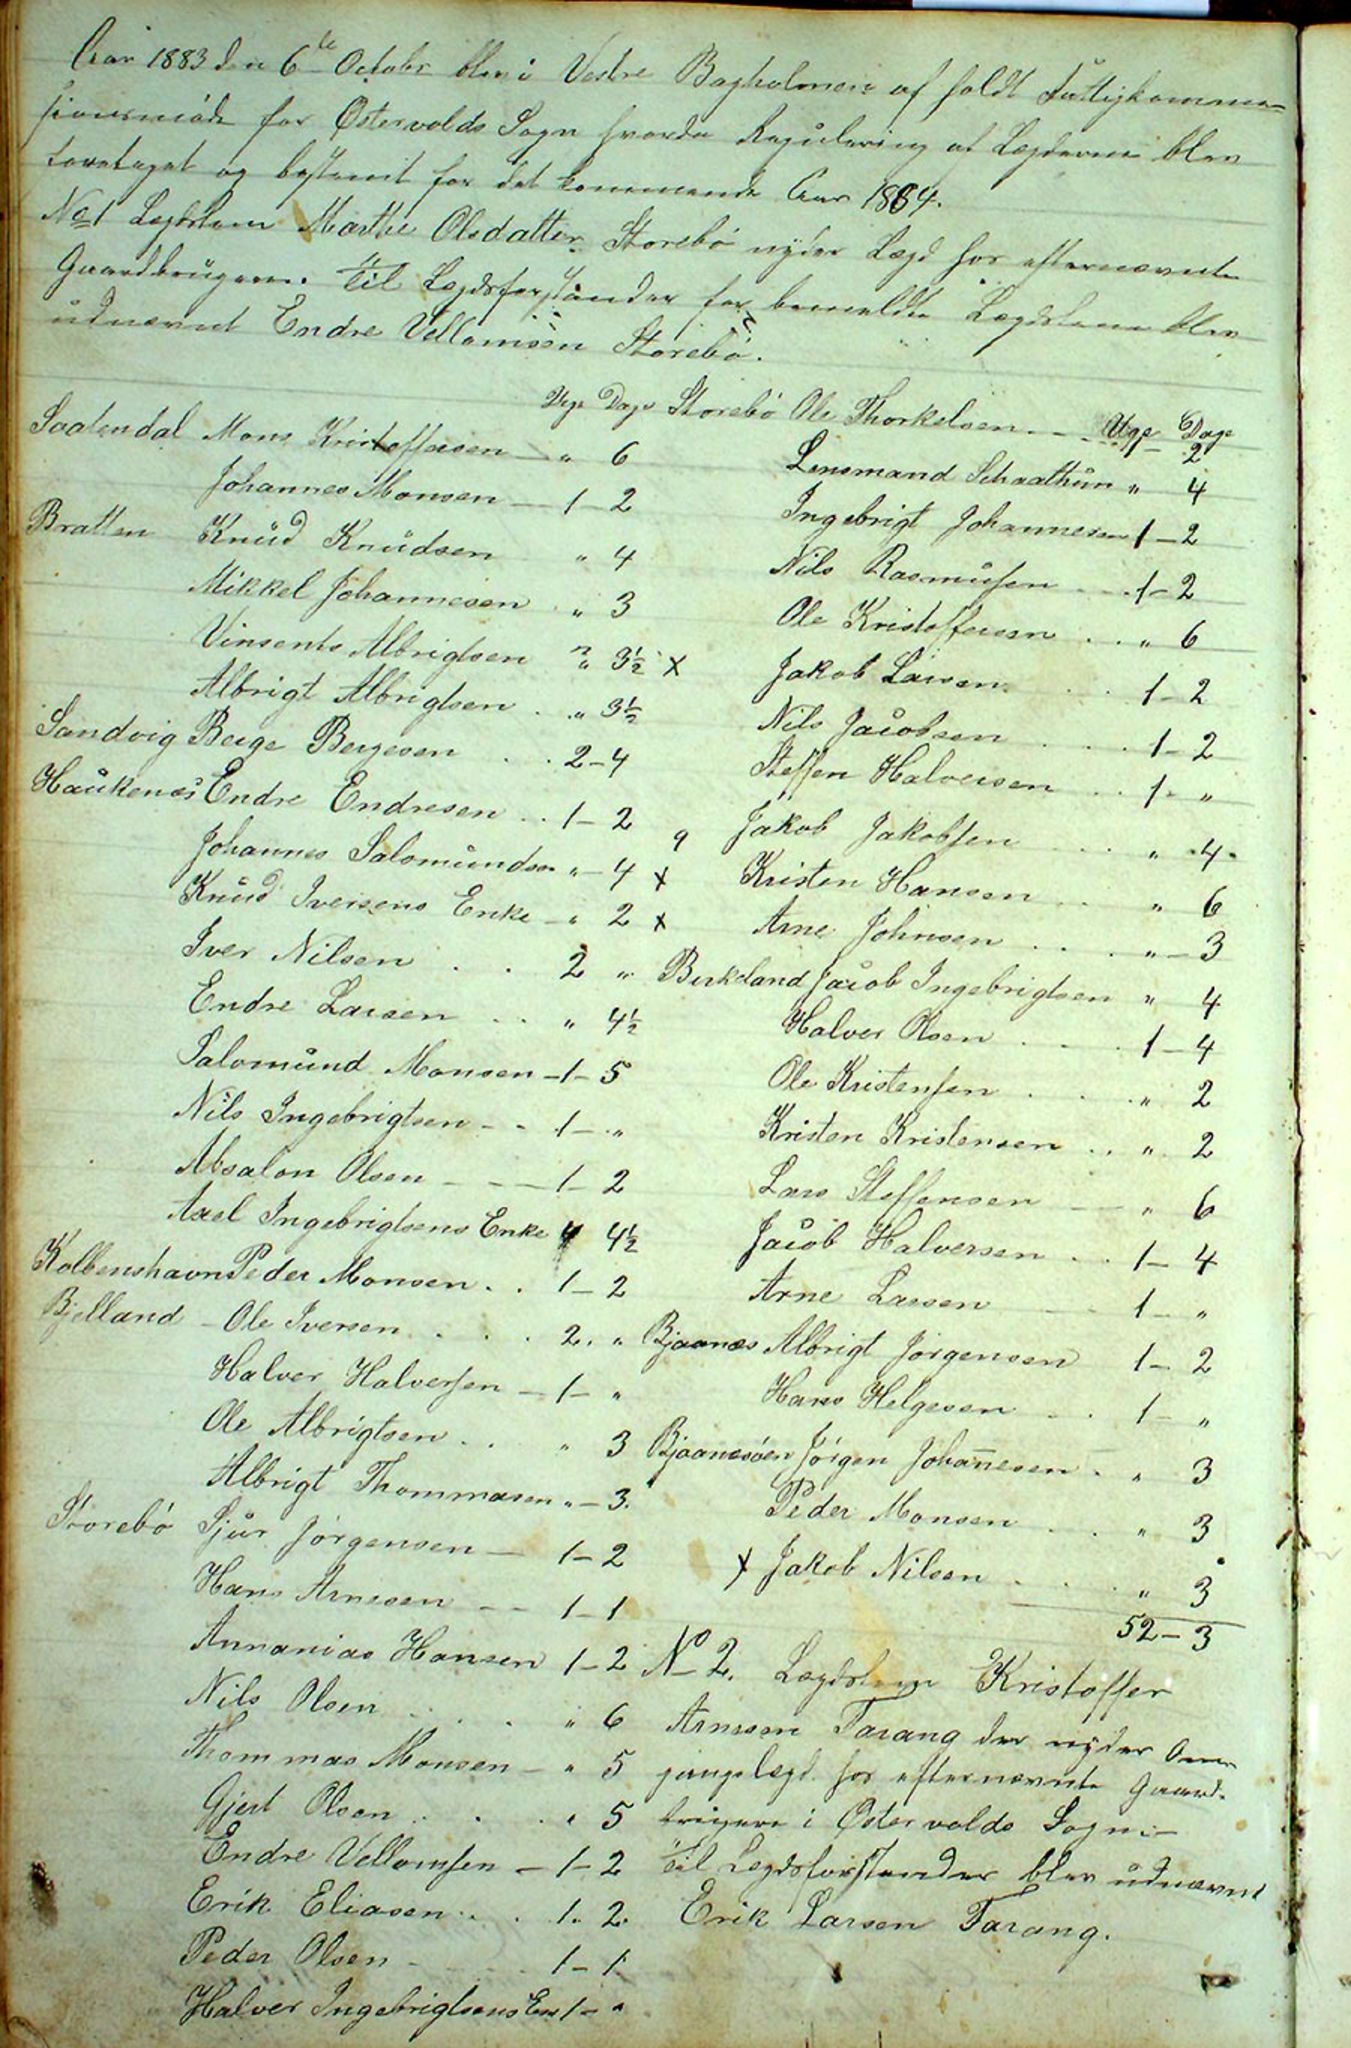 Aar 1883 den 6te Octobr blev i Vestre Bagholmen af holdt Fattigkommis
sionsmöde for Østervolds Sogn hvorda Regulering at Lægderne blev
foretaget og bestemt for det kommende Aar 1884.
No 1 Lægdslem Marthe Olsdatter Storebö nyder Lægd hos efternævnte
Gaardbrugere. Til Lægdsforstander for bemeldte Lægdslem blev
udnævnt Endre Vellomsen Storebö.
Uge Dage
Saatendal Mons Kristoffersen — " 6
Johannes Monsen — 1 — 2
Bratten Knud Knudsen " 4
Mikkel Johannesen " 3
Vinsents Albrigtsen " 3½
Albrigt Albrigtsen . " 3½
Sandvig Berge Bergesen . . 2 — 4
Haukenæs Endre Endresen . . 1 — 2
Johannes Salomundsen " — 4
Knud Iversens Enke — " 2
Iver Nilsen . . 2 "
Endre Larsen . . " 4½
Salomund Monsen — 1 — 5
Nils Ingebrigtsen — - 1 — "
Absalon Olsen — — — 1 — 2
Axel Ingebrigtsens Enke " 4½
Kolbenshavn Peder Monsen . . 1 — 2
Bjelland — Ole Iversen . . . 2. "
Halver Halversen — 1 — "
Ole Albrigtsen . . " 3
Albrigt Thommasen " — 3.
Storebö Sjur Jörgensen — 1 — 2
Hans Arnesen — — 1 — 1
Annanias Hansen 1 — 2
Nils Olsen . . . . " 6
Thommas Monsen — " 5
Gjert Olsen . . . " 5
Endre Vellomsen — 1 — 2
Erik Eliasen . . 1. 2.
Peder Olsen - - - - 1 — 1
Halver Ingebrigtsens En 1 — "
Storebö Ole Thorkelsen - - . Uge Dage
— 2
Lensmand Schaathun " 4
Ingebrigt Johannesen 1 — 2
Nils Rasmusen . . . 1 — 2
Ole Kristoffersen . . " 6
x Jakob Larsen . . 1 — 2
Nils Jacobsen . . . . 1 — 2
Steffen Halversen . . 1. "
9 Jakob Jakobsen . . " 4.
x Kristen Hansen . . " 6
x Arne Johnsen . . . " — 3
Birkeland Jacob Ingebrigtsen " 4
Halver Olsen . . . . 1 — 4
Ole Kristensen . . . " 2
Kristen Kristensen . . " 2
Lars Steffensen — " 6
Jacob Halversen . . 1 — 4
Arne Larsen — 1 — "
Bjaanæs Albrigt Jörgensen 1 — 2
Hans Helgesen . . 1 — "
Bjaanesöen Jörgen Johannesen . " 3
Peder Monsen . . " 3
x Jakob Nilsen . . . " 3
52 — 3
No 2. Lægdslem Kristoffer
Arnesen Tarang der nyder Om
gangslægd hos efternævnte Gaard-
brugere i Østervolds Sogn. —
Til Lægdsforstander blev udnævnt
Erik Larsen Tarang.